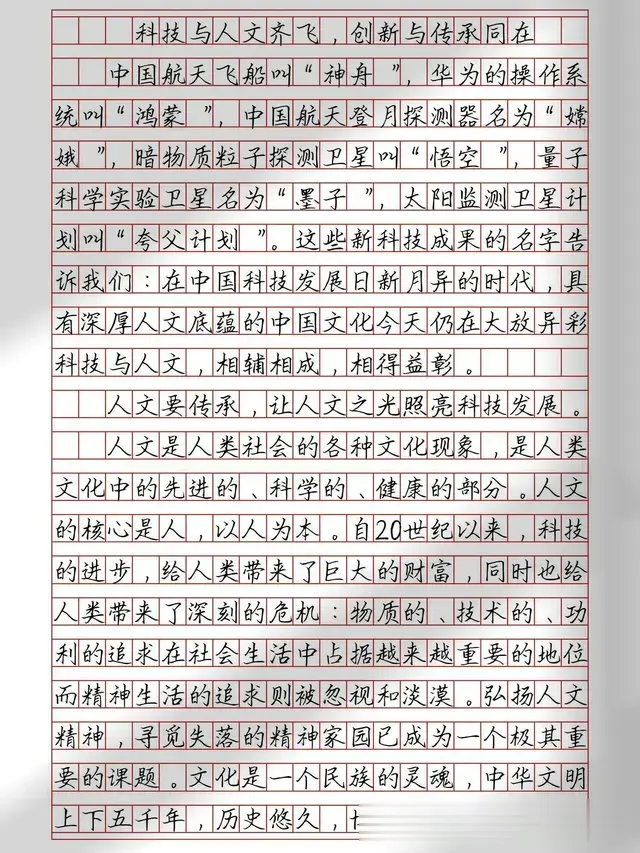 科技与人文齐飞，创新与传承同在
中国航天飞船叫“神舟”，华为的操作系
统叫“鸿蒙”，中国航天登月探测器名为“嫦
娥”，暗物质粒子探测卫星叫“悟空”，量子
科学实验卫星名为“墨子”，太阳监测卫星计
划叫“夸父计划”。这些新科技成果的名字告
诉我们：在中国科技发展日新月异的时代，具
有深厚人文底蕴的中国文化今天仍在大放异彩
科技与人文，相辅相成，相得益彰。
人文要传承，让人文之光照亮科技发展。
人文是人类社会的各种文化现象，是人类
文化中的先进的、科学的、健康的部分。人文
的核心是人，以人为本。自20世纪以来，科技
的进步，给人类带来了巨大的财富，同时也给
人类带来了深刻的危机：物质的、技术的、功
利的追求在社会生活中占据越来越重要的地位
而精神生活的追求则被忽视和淡漠。弘扬人文
精神，寻觅失落的精神家园已成为一个极其重
要的课题。文化是一个民族的灵魂，中华文明
上下五千年，历史悠久，